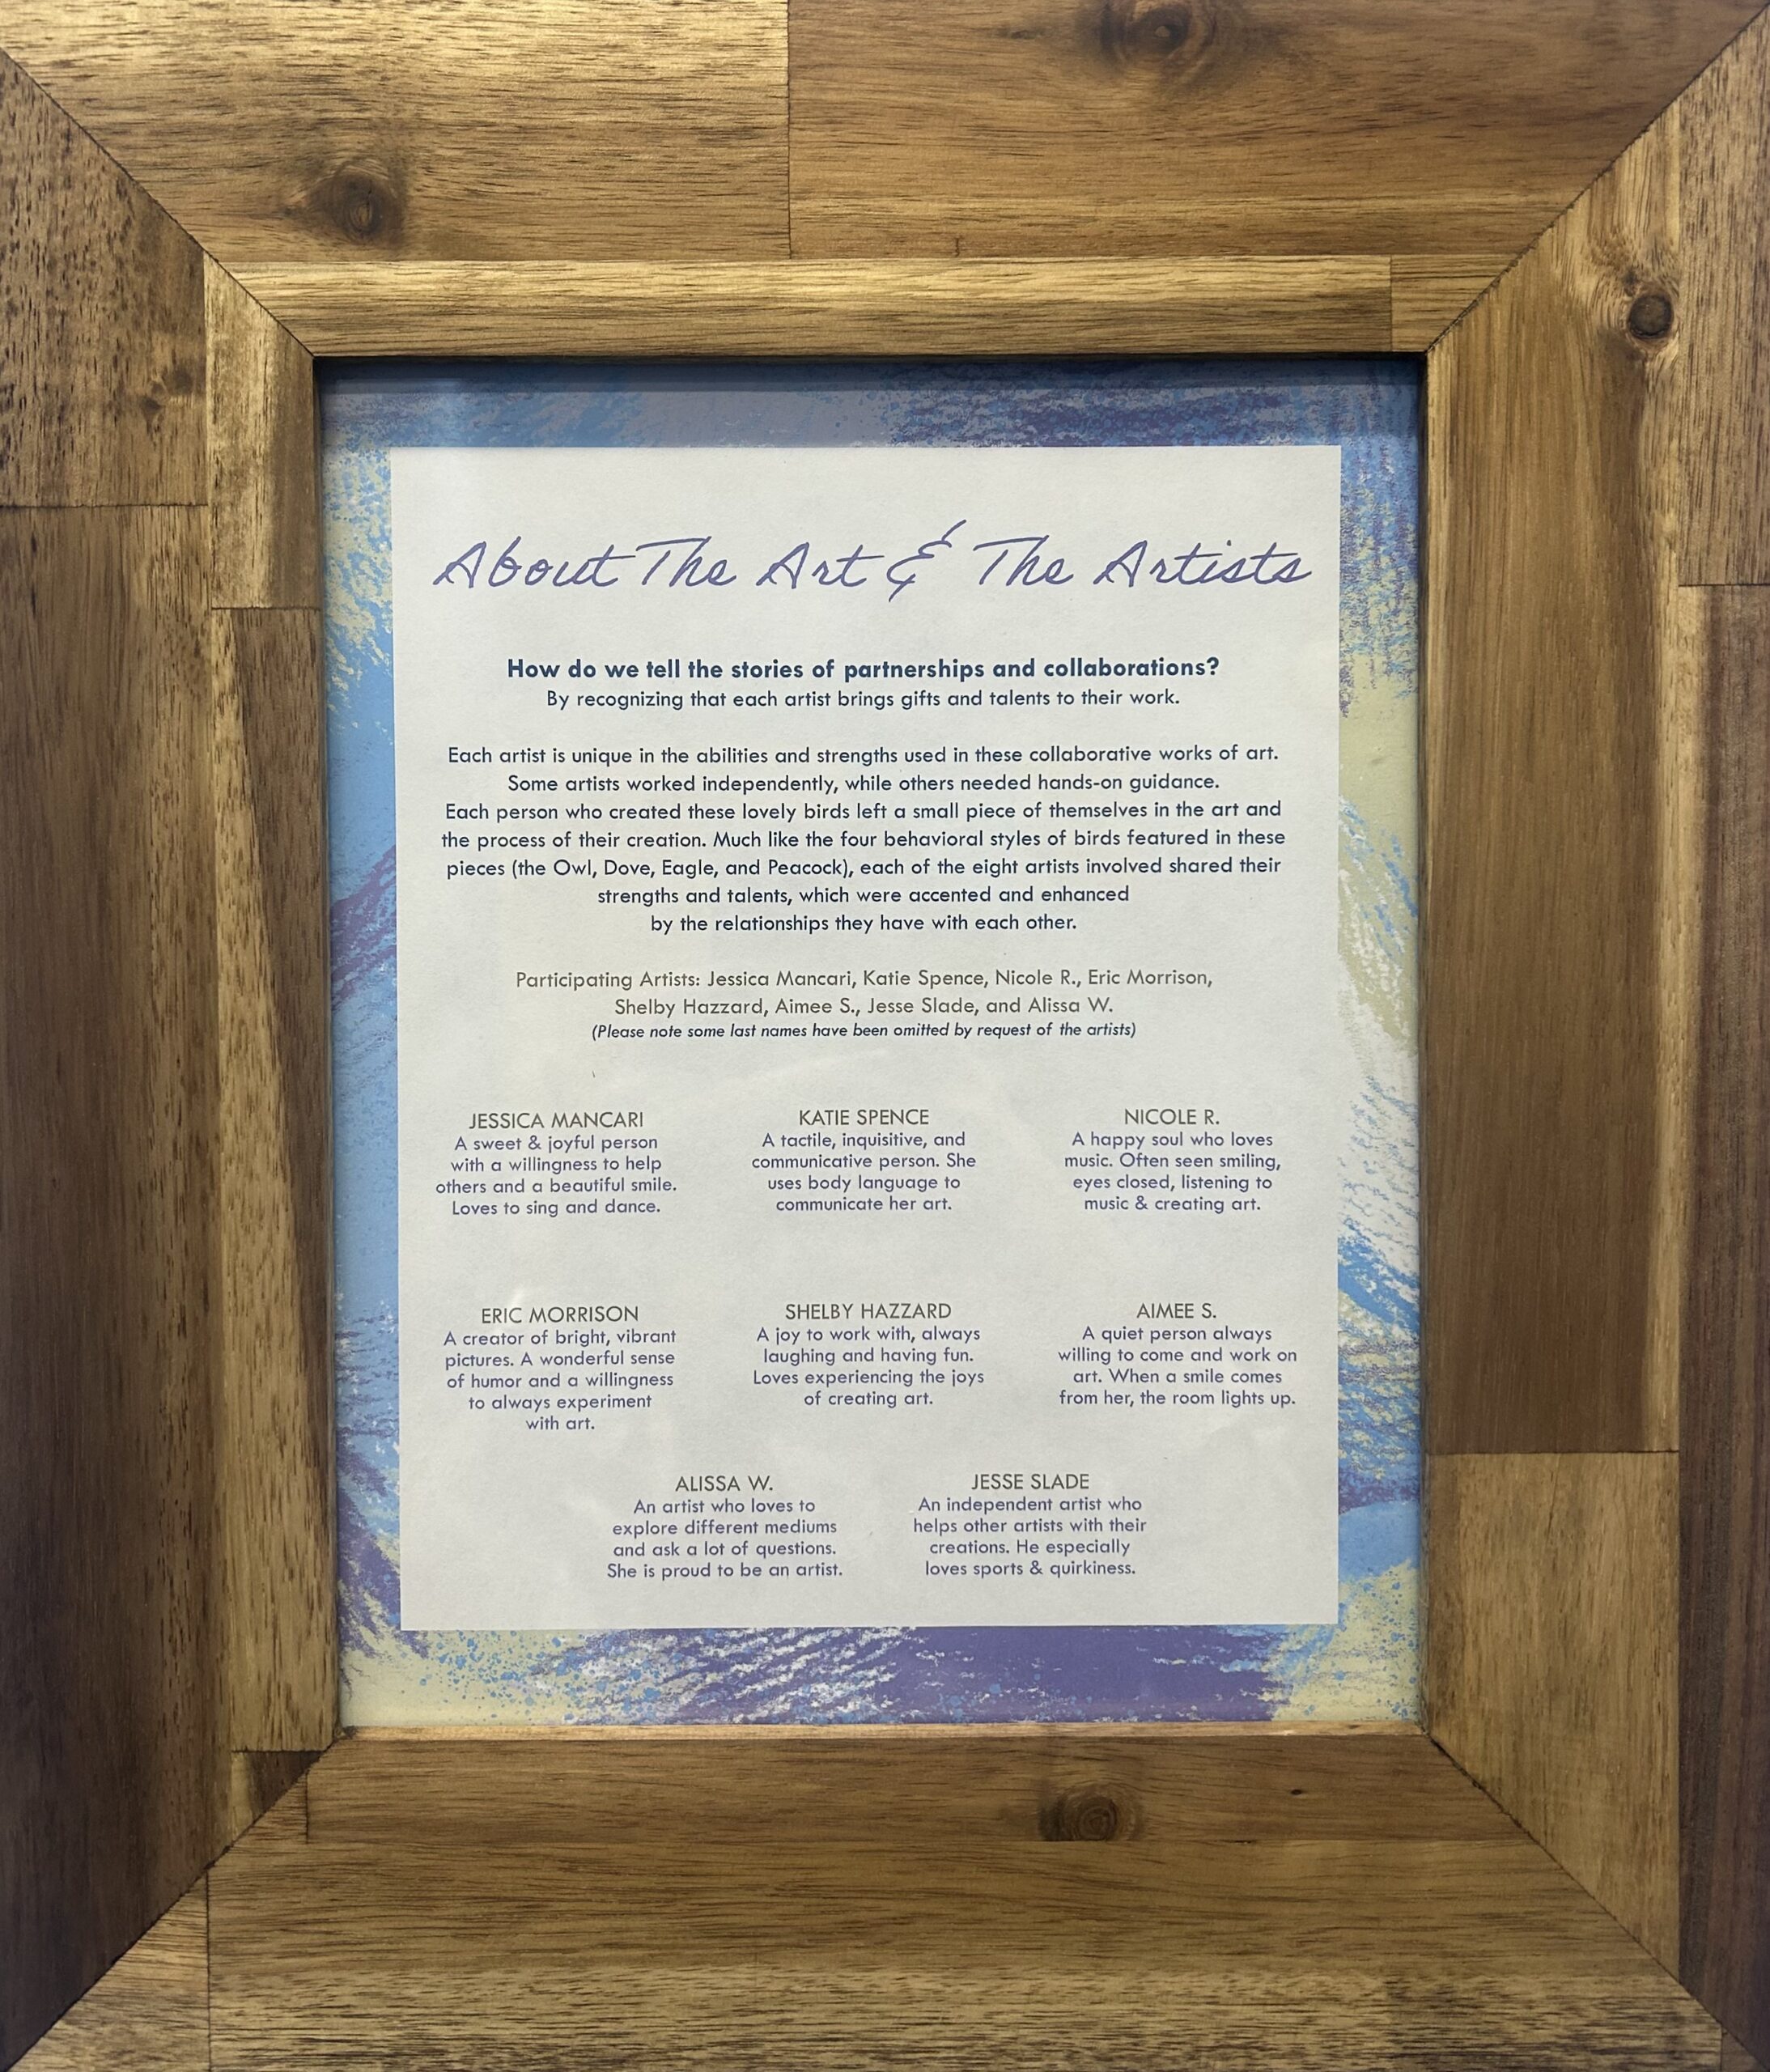 About The Art & The Artists
How do we tell the stories of partnerships and collaborations?
By recognizing that each artist brings gifts and talents to their work.
Each artist is unique in the abilities and strengths used in these collaborative works of art.
Some artists worked independently, while others needed hands-on guidance.
Each person who created these lovely birds left a small piece of themselves in the art and
the process of their creation. Much like the four behavioral styles of birds featured in these
pieces (the Owl, Dove, Eagle, and Peacock), each of the eight artists involved shared their
strengths and talents, which were accented and enhanced
by the relationships they have with each other.
Participating Artists: Jessica Mancari, Katie Spence, Nicole R., Eric Morrison,
Shelby Hazzard, Aimee S., Jesse Slade, and Alissa W.
(Please note some last names have been omitted by request of the artists)
JESSICA MANCARI
A sweet & joyful person
with a willingness to help
others and a beautiful smile.
Loves to sing and dance.
KATIE SPENCE
A tactile, inquisitive, and
communicative person. She
uses body language to
communicate her art.
NICOLE R.
A happy soul who loves
music. Often seen smiling,
eyes closed, listening to
music & creating art.
ERIC MORRISON
A creator of bright, vibrant
pictures. A wonderful sense
of humor and a willingness
to always experiment
with art.
SHELBY HAZZARD
A joy to work with, always
laughing and having fun.
Loves experiencing the joys
of creating art.
AIMEE S.
A quiet person always
willing to come and work on
art. When a smile comes
from her, the room lights up.
ALISSA W.
An artist who loves to
explore different mediums
and ask a lot of questions.
She is proud to be an artist.
JESSE SLADE
An independent artist who
helps other artists with their
creations. He especially
loves sports & quirkiness.